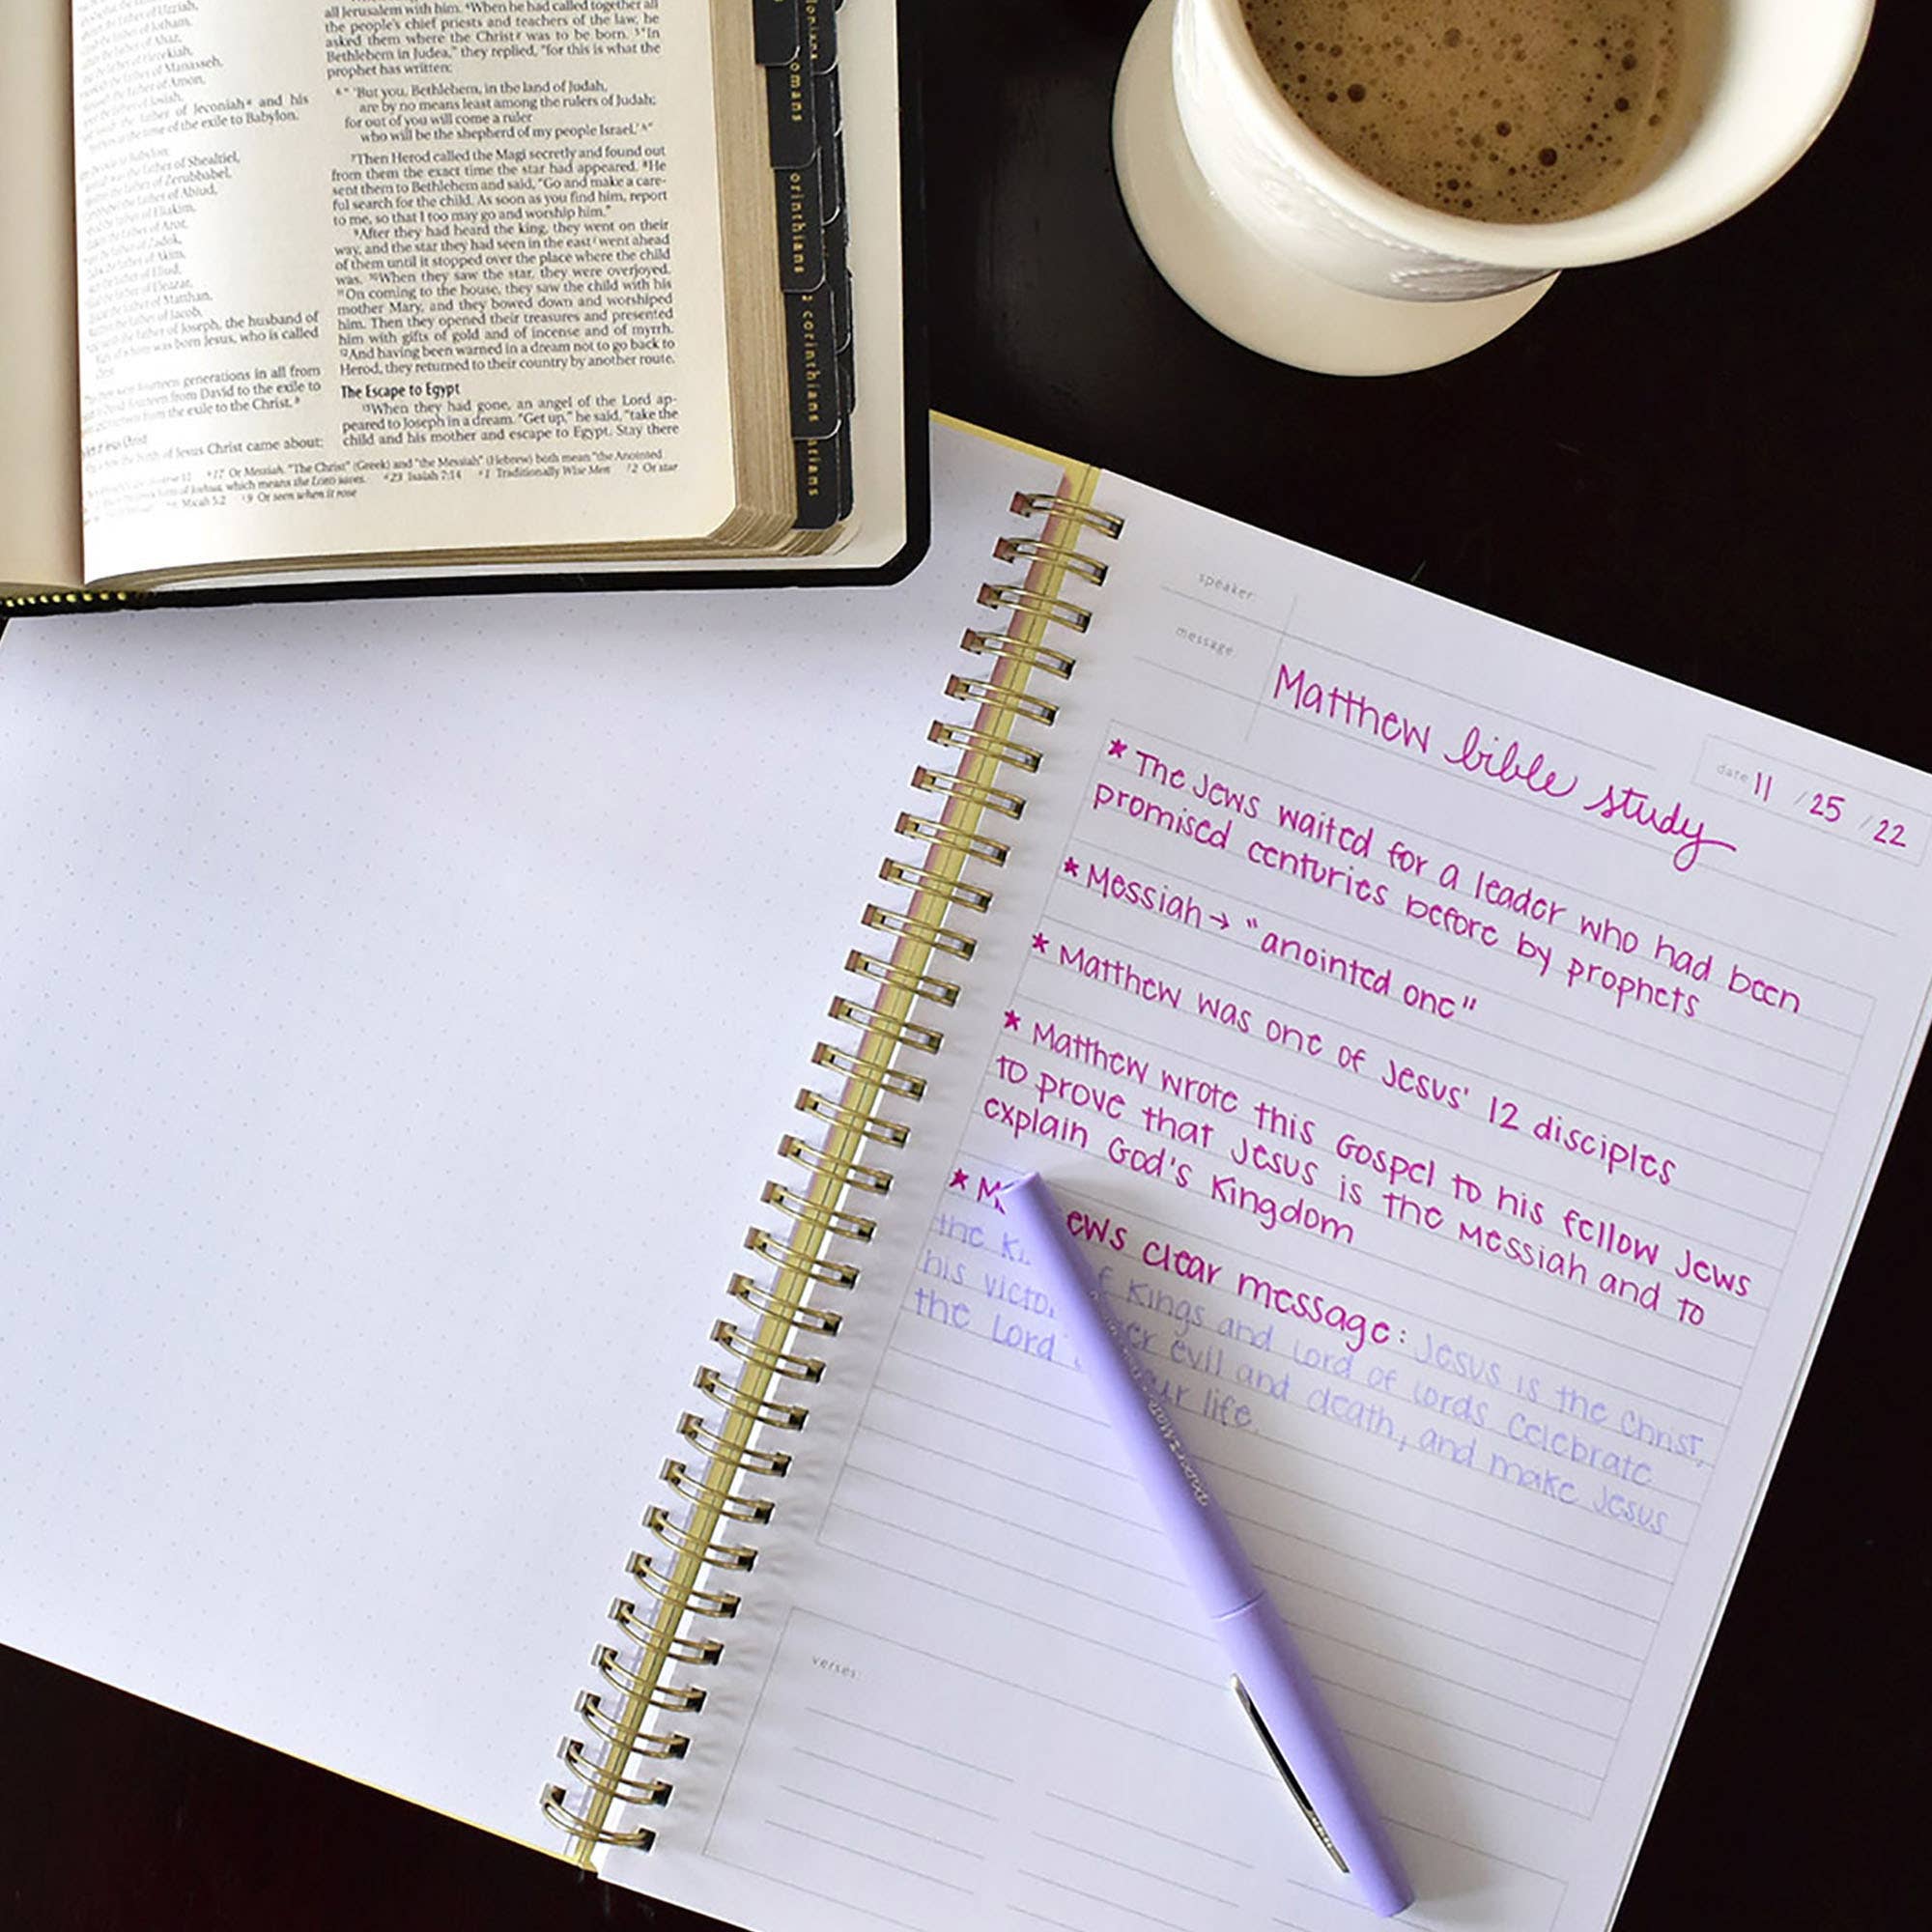 of Jeconiah and his
time of the exile to Babylon.
father of Shealtiel,
father of Zerubbabel,
father of Abiud,
father of Eliakim,
father of Joseph, the husband of
was born Jesus, who is called
fourteen generations in all from
fourteen from David to the exile to
from the exile to the Christ.
birth of Jesus Christ came about:
all Jerusalem with him. 4When he had called together all
the people's chief priests and teachers of the law, he
asked them where the Christ was to be born. 5"In
Bethlehem in Judea," they replied, "for this is what the
prophet has written:
6 "'But you, Bethlehem, in the land of Judah,
are by no means least among the rulers of Judah;
for out of you will come a ruler
who will be the shepherd of my people Israel.'"
7Then Herod called the Magi secretly and found out
from them the exact time the star had appeared. 8He
sent them to Bethlehem and said, "Go and make a care-
ful search for the child. As soon as you find him, report
to me, so that I too may go and worship him."
9After they had heard the king, they went on their
way, and the star they had seen in the east went ahead
of them until it stopped over the place where the child
was. 10When they saw the star, they were overjoyed.
11On coming to the house, they saw the child with his
mother Mary, and they bowed down and worshiped
him. Then they opened their treasures and presented
him with gifts of gold and of incense and of myrrh.
12And having been warned in a dream not to go back to
Herod, they returned to their country by another route.
The Escape to Egypt
13When they had gone, an angel of the Lord ap-
peared to Joseph in a dream. "Get up," he said, "take the
child and his mother and escape to Egypt. Stay there
17 Or Messiah. "The Christ" (Greek) and "the Messiah" (Hebrew) both mean "the Anointed
which means the LORD saves. 23 Isaiah 7:14 1 Traditionally Wise Men 2 Or star
Micah 5:2 9 Or seen when it rose
omans
orinthians
2 corinthians
speaker:
message
Matthew bible study
date 11 / 25 / 22
* The Jews waited for a leader who had been
promised centuries before by prophets
* Messiah → "anointed one"
* Matthew was one of Jesus' 12 disciples
* Matthew wrote this Gospel to his fellow Jews
to prove that Jesus is the Messiah and to
explain God's Kingdom
* M ews clear message: Jesus is the Christ,
the Ki f Kings and Lord of Lords Celebrate
his victo er evil and death, and make Jesus
the Lord ur life.
papermate
verses: